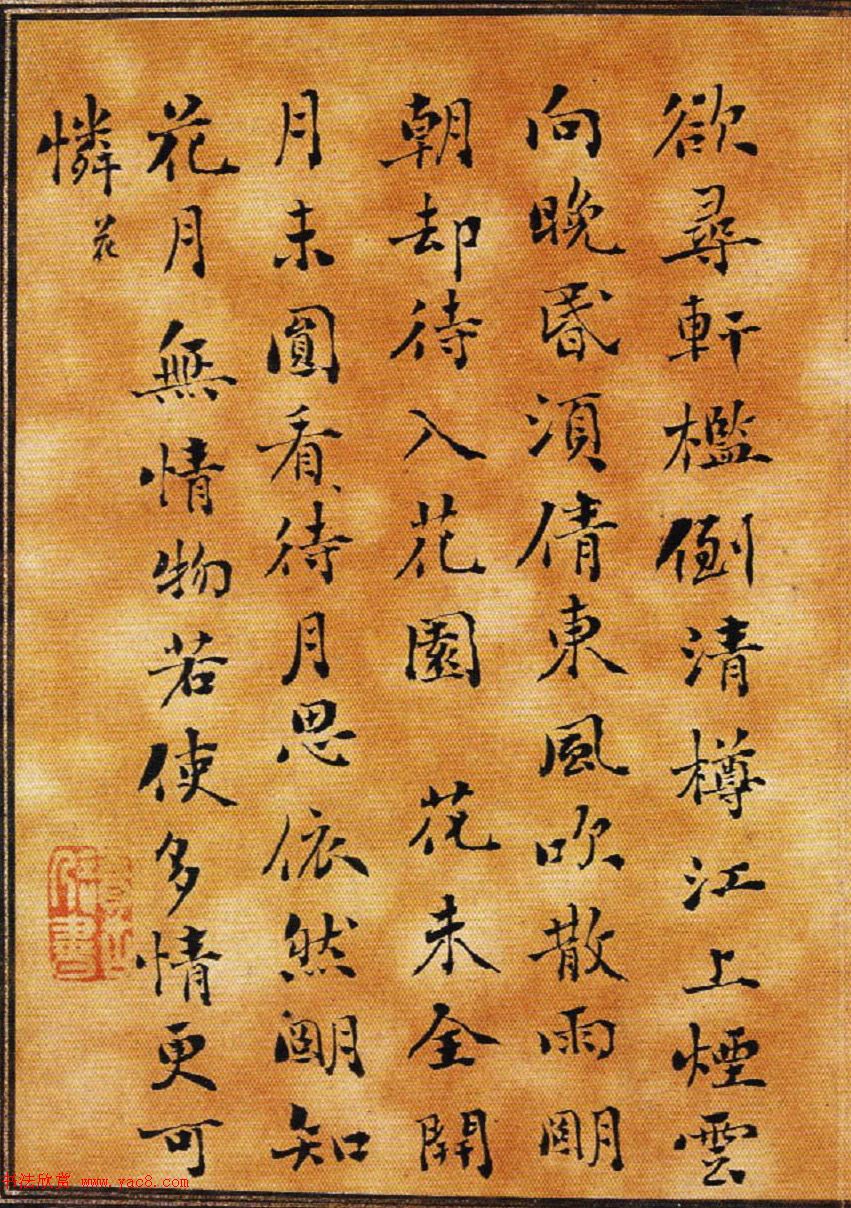 欲尋軒檻倒清樽江上煙雲
向晚昬須倩東風吹散雨朙
朝却待入花園 花未全開
月未圓看、待月思依然朙知
花月無情物若使多情更可
憐 花
书法欣赏 www.yac8.com